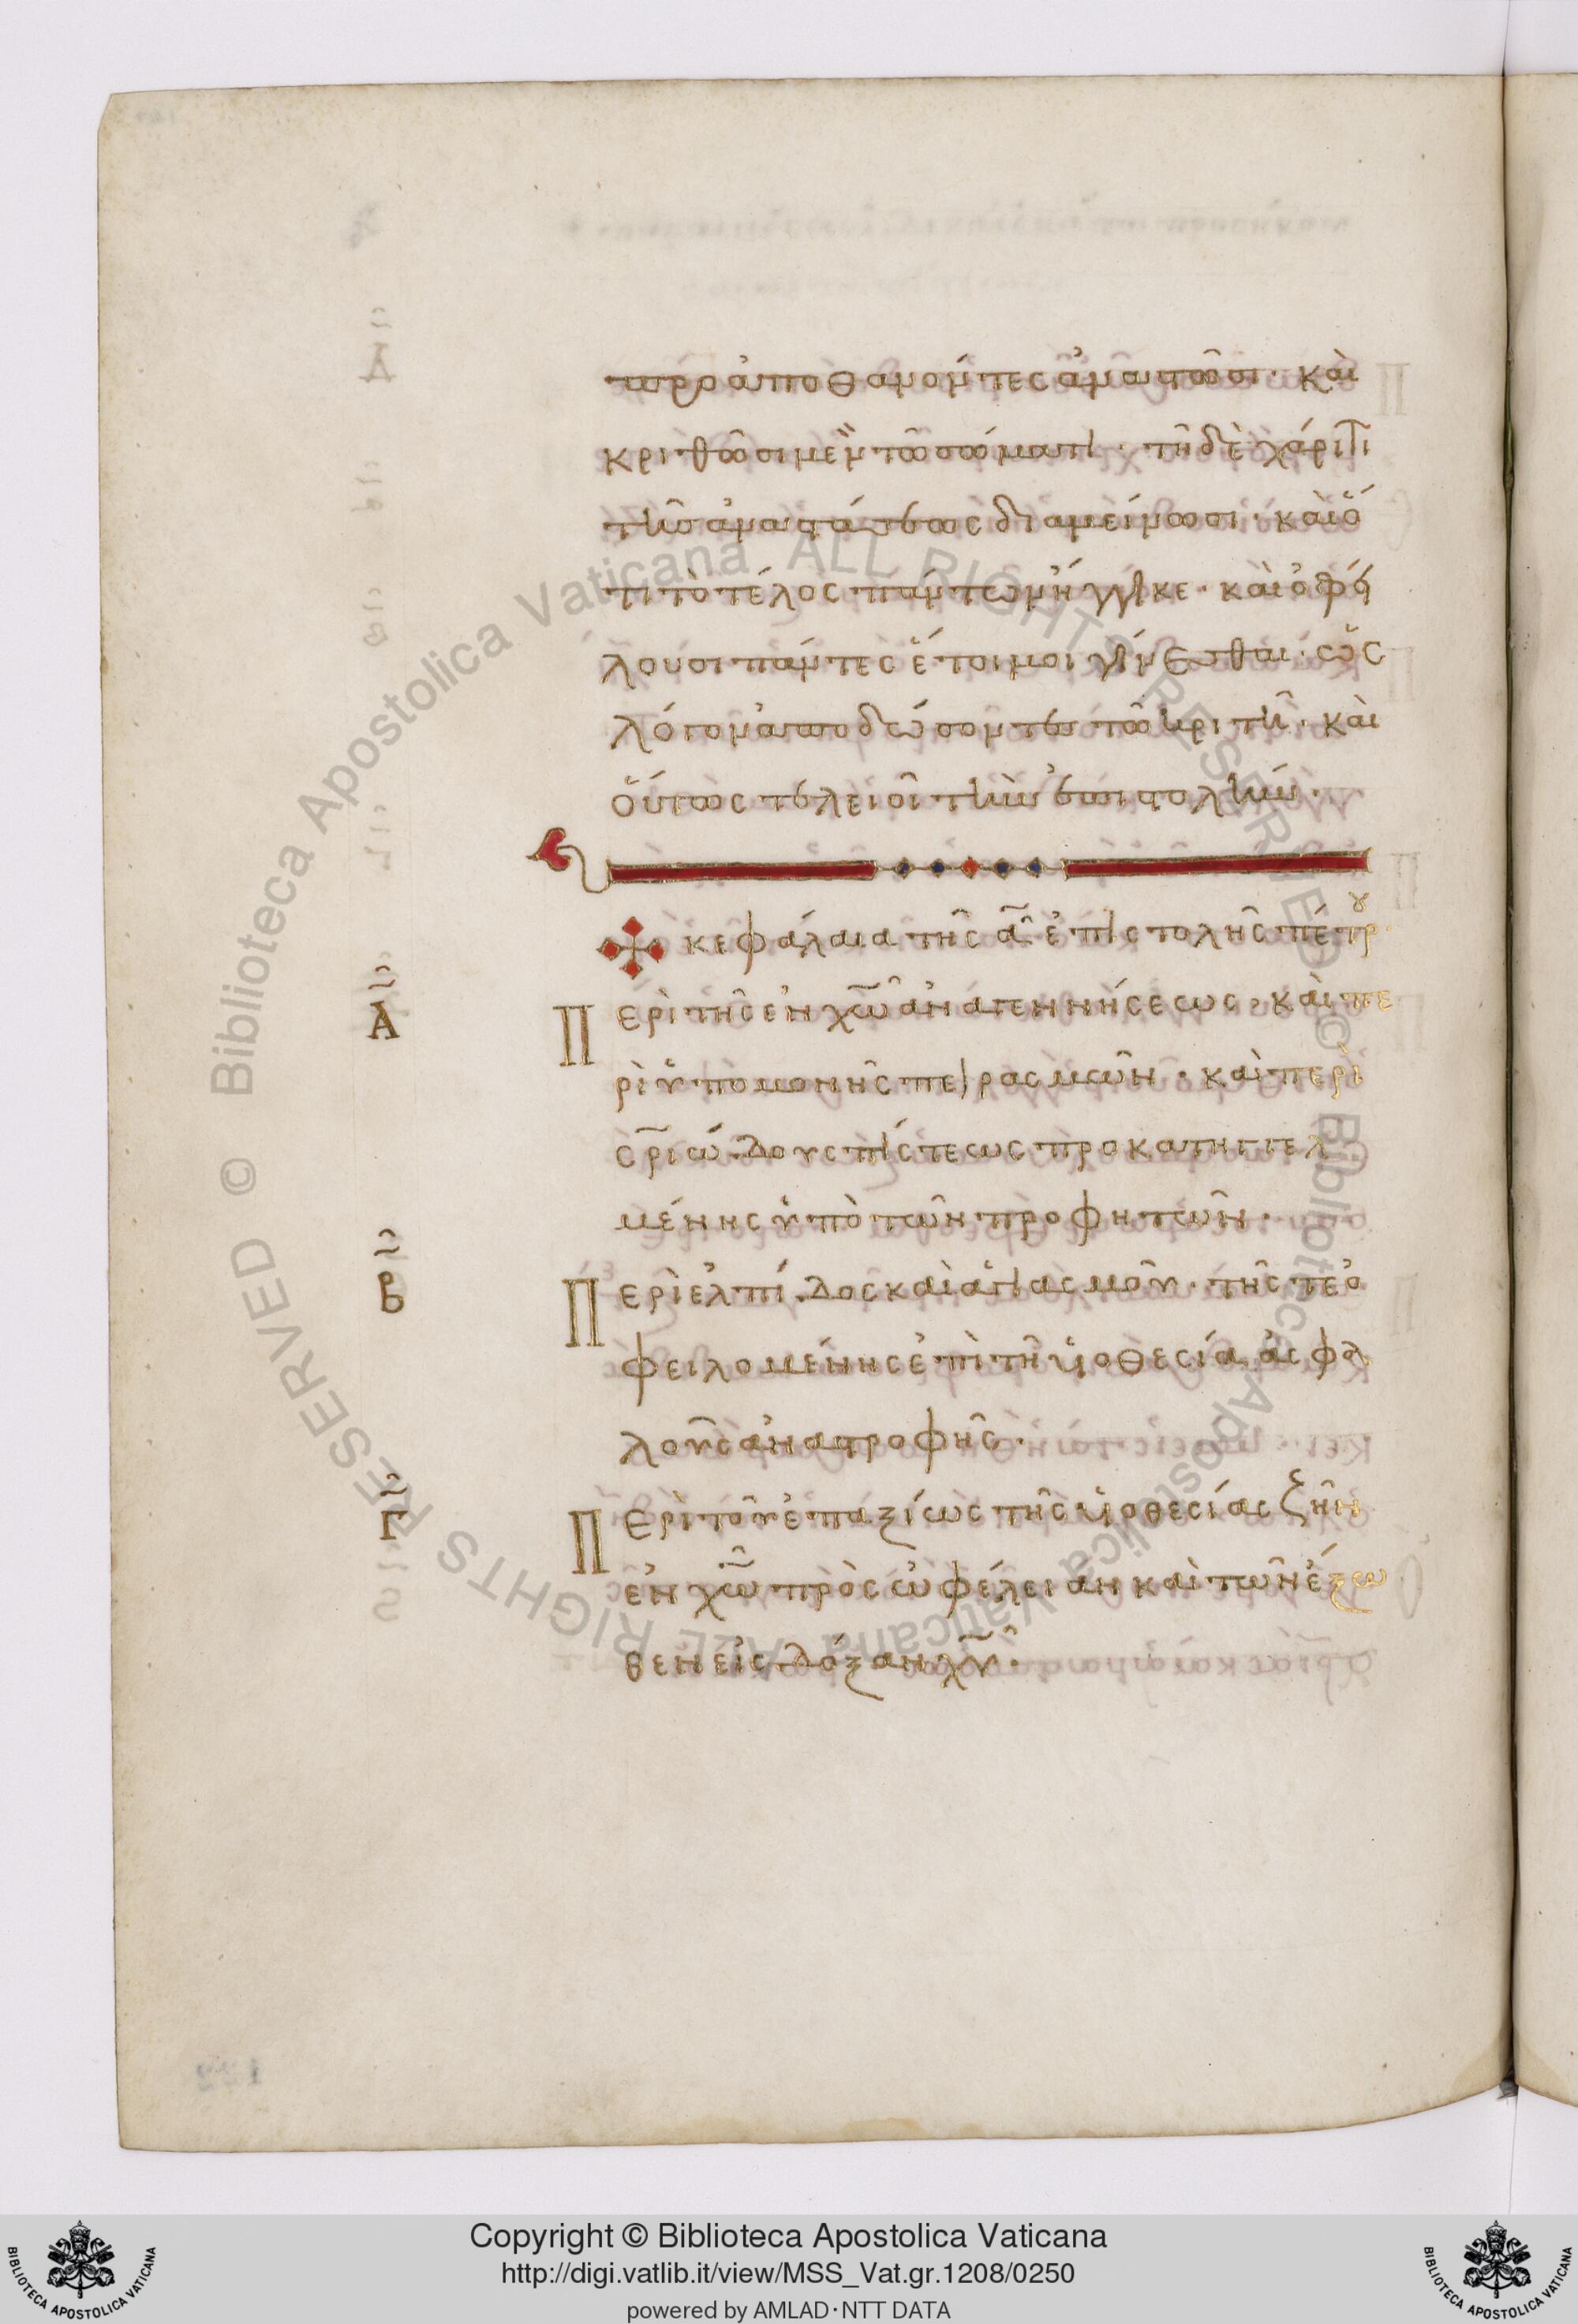 προαποθανόντες ἀναστῶσι· καὶ
κριθῶσι μὲν τῶ σώματι· τῆ δὲ χάριτι
τῆς ἀναστάσεως διαμείνωσι· καὶ ὅ
τι τὸ τέλος πάντων ἤγγικε· καὶ ὀφεί
λουσι πάντες ἕτοιμοι γίνεσθαι· ὡς
λόγον ἀποδώσοντες τῶ κριτῆ· καὶ
οὕτως τελειοῖ τὴν ἐπιστολήν·
κεφάλαια τῆς α̅ ἐπιστολῆς πέτρου
Α Περὶ τῆς ἐν χω̅ ἀναγεννήσεως· καὶ πε
ρὶ ὑπομονῆς πειρασμῶν· καὶ περὶ
σρ̅ιώδους πίστεως προκατηγγελ
μένης ὑπὸ τῶν προφητῶν·
Β Περὶ ἐλπίδος καὶ ἁγιασμοῦ· τῆς τε ὀ
φειλομένης ἐπὶ τῆ υἱοθεσία ἀσφα
λοῦς ἀναστροφῆς·
Γ Περὶ τοῦ ἐπαξίως τῆς υἱοθεσίας ζῆν
ἐν χω̅ πρὸς ὠφέλειαν καὶ τῶν ἔξω
θεν εἰς δόξαν χυ̅·
© Biblioteca Apostolica Vaticana ALL RIGHTS RESERVED
© Biblioteca Apostolica Vaticana ALL RIGHTS RESERVED
Copyright © Biblioteca Apostolica Vaticana
http://digi.vatlib.it/view/MSS_Vat.gr.1208/0250
powered by AMLAD·NTT DATA
BIBLIOTECA APOSTOLICA VATICANA
BIBLIOTECA APOSTOLICA VATICANA